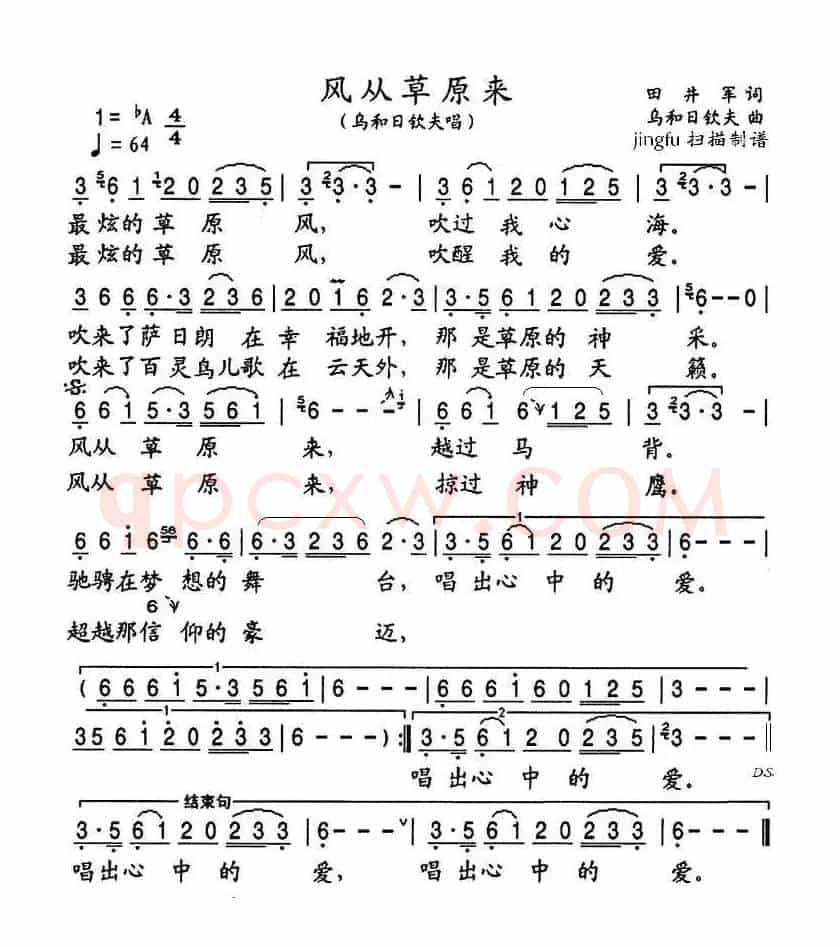 风从草原来
(乌和日钦夫唱)
1=♭A 4/4
♩=64
田井军词
乌和日钦夫曲
jingfu 扫描制谱
3 6 1 1 2 0 2 3 5 | 3 3·3 - - | 3 6 1 2 0 1 2 5 | 3 3·3 - |
最炫的草原风,吹过我心海。
最炫的草原风,吹醒我的爱。
3 6 6 6·3 2 3 6 | 2 0 1 6 2·3 | 3·5 6 1 2 0 2 3 5 | 6 - - 0 |
吹来了萨日朗在幸福地开,那是草原的神采。
吹来了百灵鸟儿歌在云天外,那是草原的天籁。
6 6 1 5·3 5 6 1 | 6 - - - | 6 6 1 6 1 2 5 | 3 3·3 - |
风从草原来,越过马背。
风从草原来,掠过神鹰。
qpcxw.COM
6 6 1 6 56 6·6 | 6·3 2 3 6 2·3 | 3·5 6 1 2 0 2 3 3 | 6 - - - |
驰骋在梦想的舞台,唱出心中的爱。
6
超越那信仰的豪迈,
1
( 6 6 6 1 5·3 5 6 1 | 6 - - - | 6 6 6 1 6 0 1 2 5 | 3 - - - |
1
3 5 6 1 2 0 2 3 3 | 6 - - - ) :|| 2 3·5 6 1 2 0 2 3 5 | 3 - - - ||
唱出心中的爱。 D.S.
结束句
3·5 6 1 2 0 2 3 3 | 6 - - - ∨ | 3·5 6 1 2 0 2 3 3 | 6 - - - ||
唱出心中的爱,唱出心中的爱。